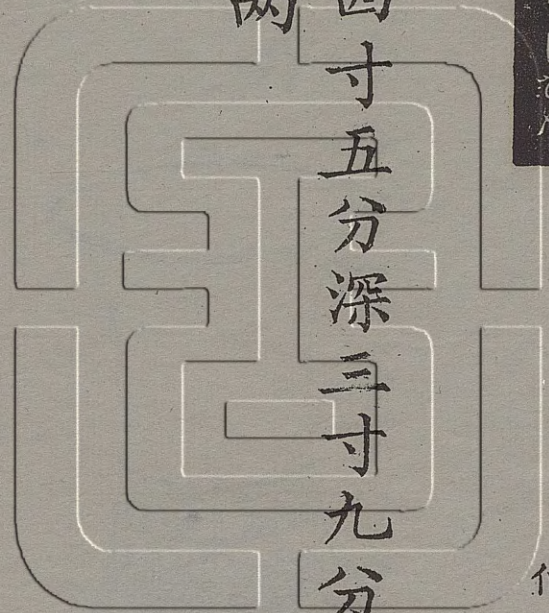 四寸五分深三寸九分
两